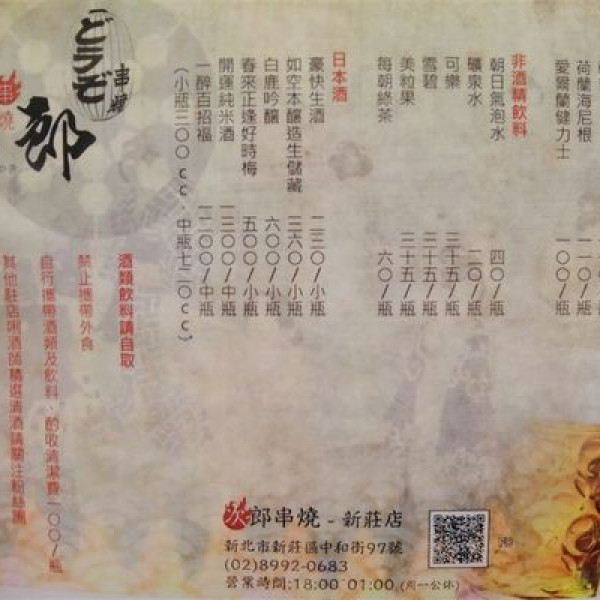 荷蘭海尼根 一一〇/瓶
愛爾蘭健力士 一〇〇/瓶
非酒精飲料
朝日氣泡水 四〇/瓶
礦泉水 二〇/瓶
可樂 三十五/瓶
雪碧 三十五/瓶
美粒果 三十五/瓶
每朝綠茶 六〇/瓶
日本酒
豪快生酒 二三〇/小瓶
如空本釀造生儲藏 三六〇/小瓶
白鹿吟釀 六〇〇/小瓶
春來正逢好時梅 五〇〇/小瓶
開運純米酒 一三〇〇/中瓶
一醉百招福 一二〇〇/中瓶
(小瓶三〇〇cc、中瓶七二〇cc)
酒類飲料請自取
禁止攜帶外食
自行攜帶酒類及飲料、酌收清潔費一〇〇/瓶
其他駐店唎酒師精選清酒請關注粉絲團
どうぞ
串燒
郎
串
燒
次郎串燒 - 新莊店
新北市新莊區中和街97號
(02)8992-0683
營業時間:18:00~01:00 (周一公休)